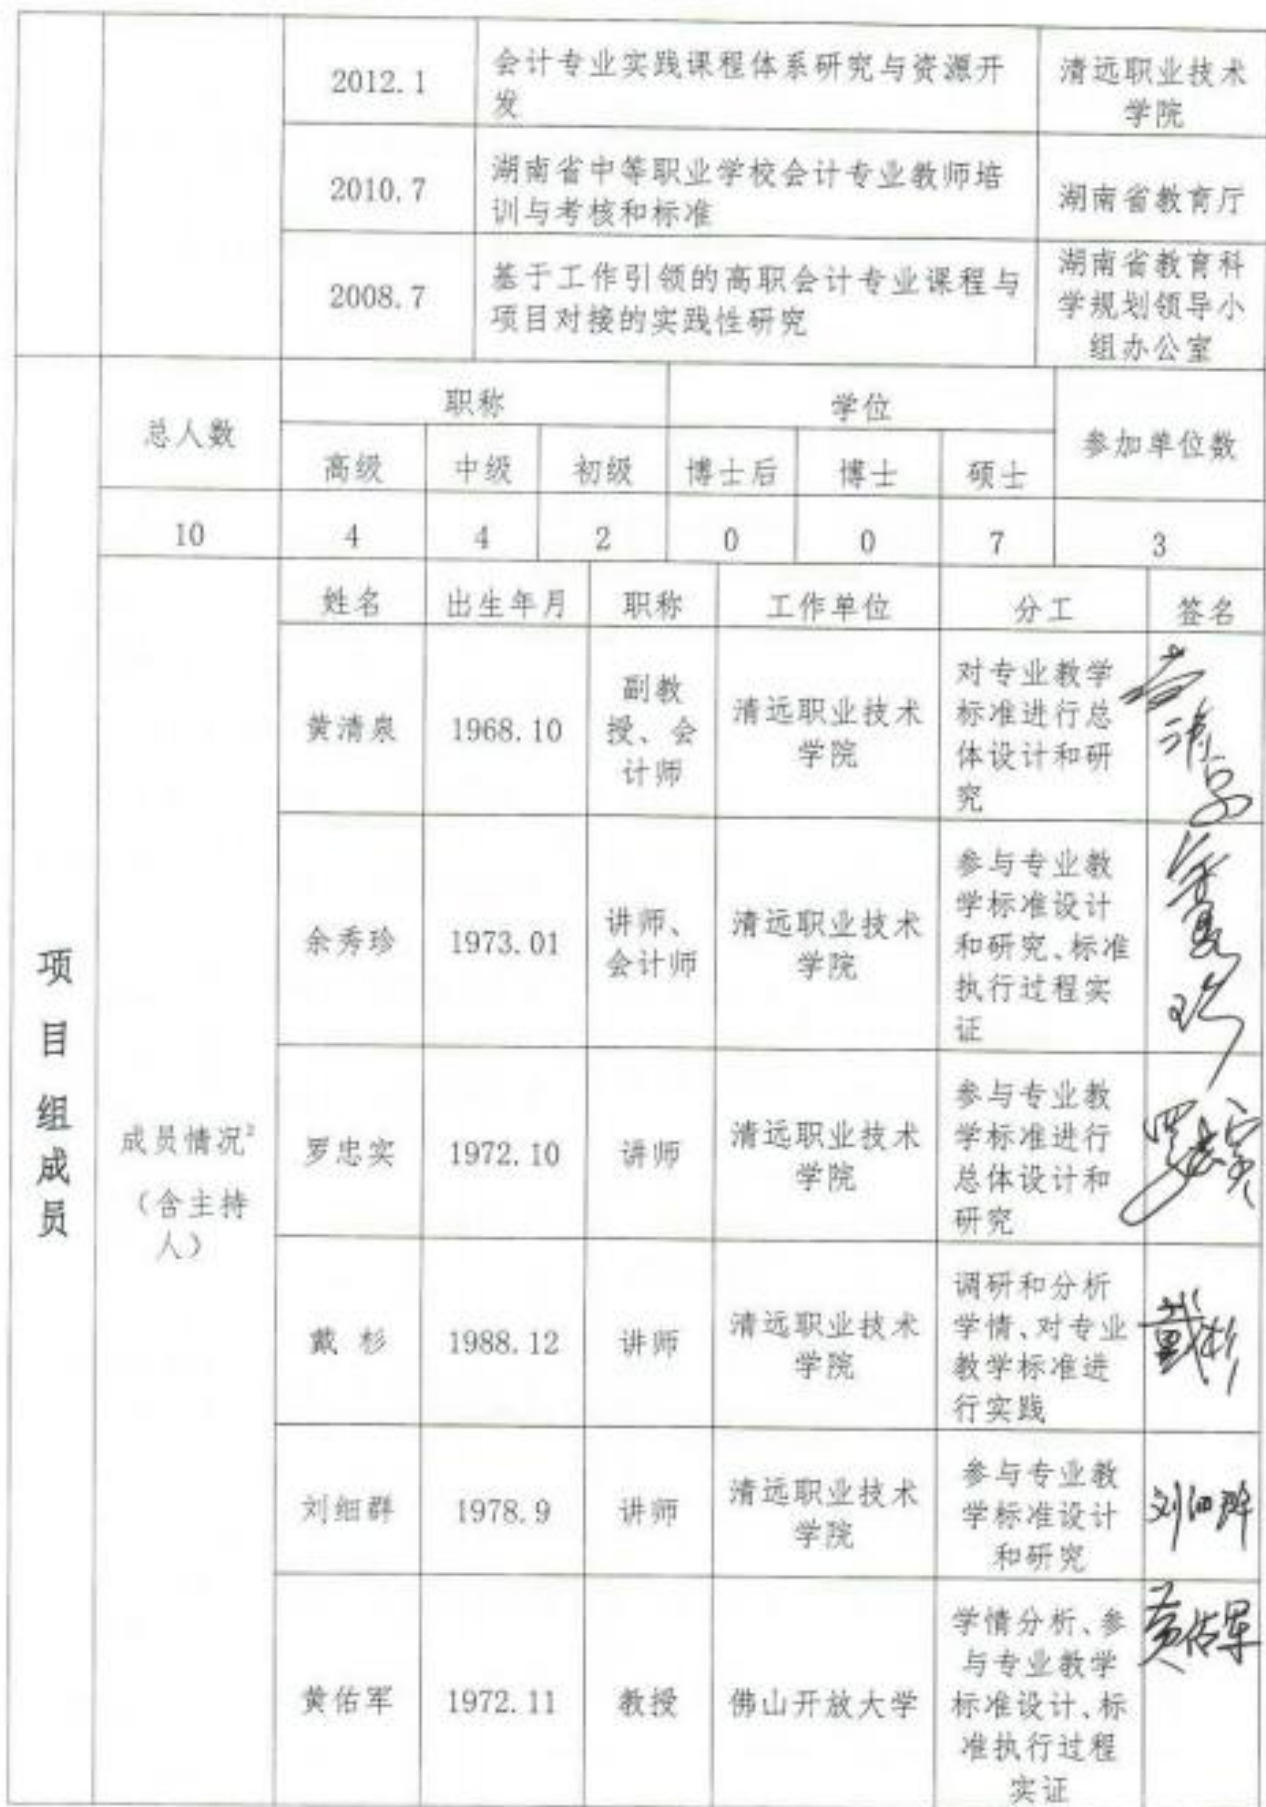 2012.1
会计专业实践课程体系研究与资源开
发
清远职业技术
学院
2010.7
湖南省中等职业学校会计专业教师培
训与考核和标准
湖南省教育厅
2008.7
基于工作引领的高职会计专业课程与
项目对接的实践性研究
湖南省教育科
学规划领导小
组办公室
项目组成员
总人数
职称
学位
参加单位数
高级
中级
初级
博士后
博士
硕士
10
4
4
2
0
0
7
3
成员情况²
（含主持
人）
姓名
出生年月
职称
工作单位
分工
签名
黄清泉
1968.10
副教
授、会
计师
清远职业技术
学院
对专业教学
标准进行总
体设计和研
究
余秀珍
1973.01
讲师、
会计师
清远职业技术
学院
参与专业教
学标准设计
和研究、标准
执行过程实
证
余秀珍
罗忠实
1972.10
讲师
清远职业技术
学院
参与专业教
学标准进行
总体设计和
研究
罗忠实
戴 杉
1988.12
讲师
清远职业技术
学院
调研和分析
学情、对专业
教学标准进
行实践
戴杉
刘细群
1978.9
讲师
清远职业技术
学院
参与专业教
学标准设计
和研究
刘细群
黄佑军
1972.11
教授
佛山开放大学
学情分析、参
与专业教学
标准设计、标
准执行过程
实证
黄佑军